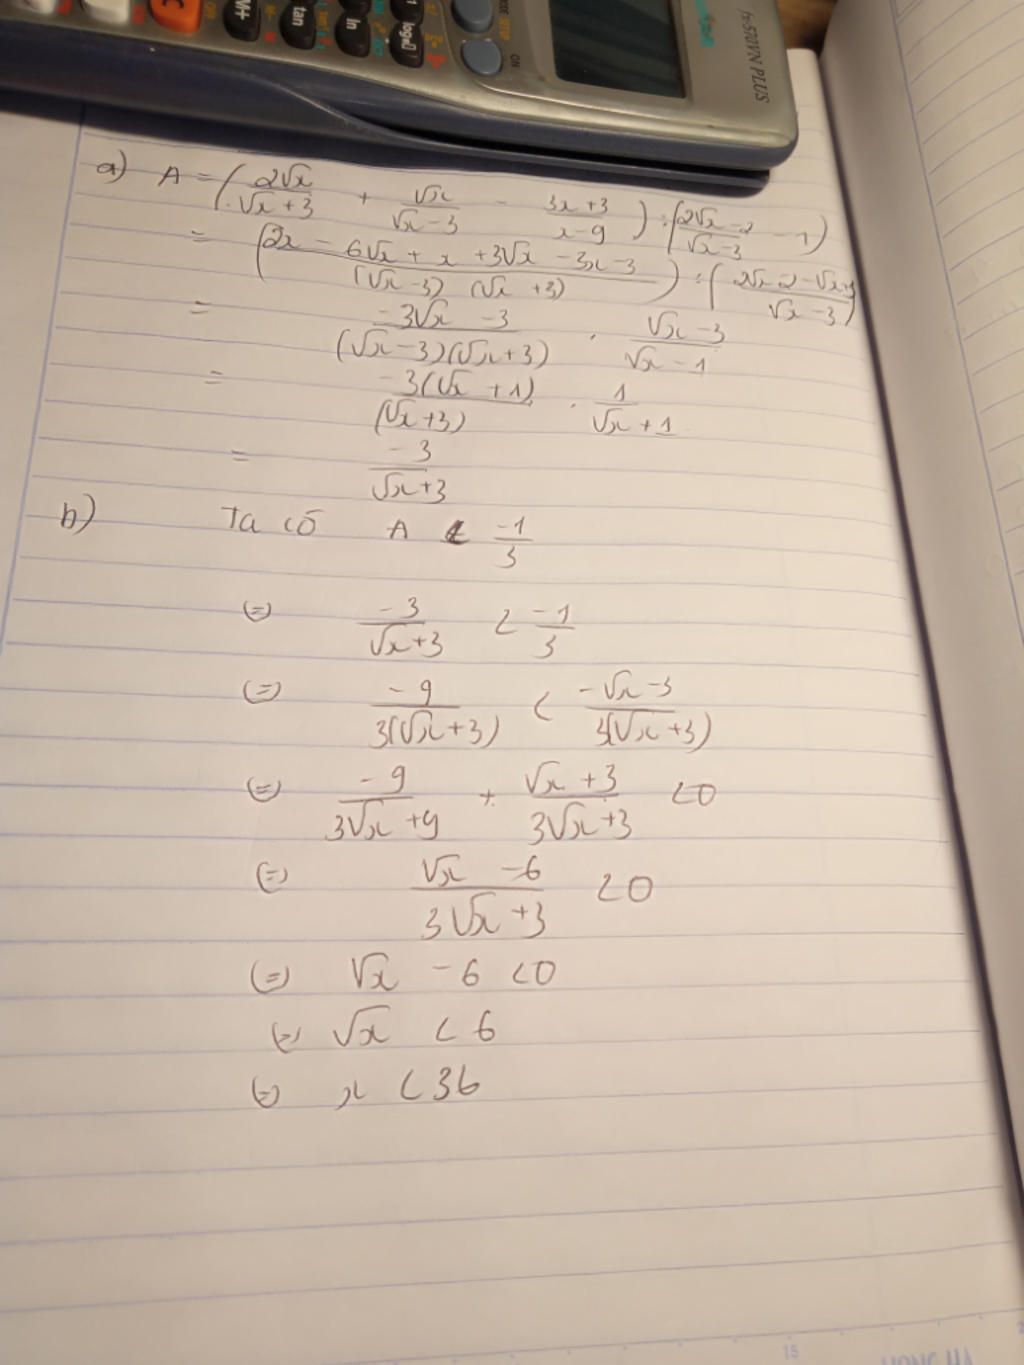 fx-570VN PLUS
ON
log
ln
tan
a) A = (2√x/(√x + 3) + √x/(√x - 3) - (3x + 3)/(x - 9)) : ((2√x - 2)/(√x - 3) - 1)
= ((2x - 6√x + x + 3√x - 3x - 3)/((√x - 3)(√x + 3))) : ((2√x - 2 - √x + 3)/(√x - 3))
= (-3√x - 3)/((√x - 3)(√x + 3)) . (√x - 3)/(√x - 1)
= -3(√x + 1)/(√x + 3) . 1/(√x + 1)
= -3/(√x + 3)
b) Ta có A < -1/3
(=) -3/(√x + 3) < -1/3
(=) -9/(3(√x + 3)) < (-√x - 3)/(3(√x + 3))
(=) -9/(3√x + 9) + (√x + 3)/(3√x + 3) < 0
(=) (√x - 6)/(3√x + 3) < 0
(=) √x - 6 < 0
(=) √x < 6
(=) x < 36
15
HONG HA